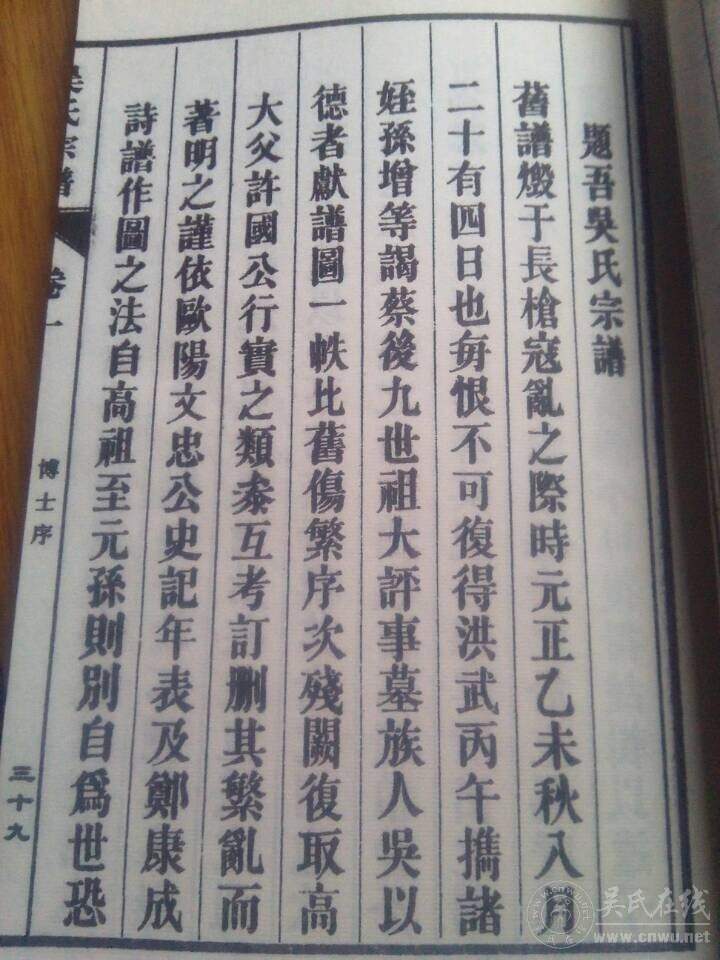 題吾吳氏宗譜
舊譜燬于長槍寇亂之際時元正乙未秋八月
二十有四日也每恨不可復得洪武丙午攜諸
姪孫增等謁蔡後九世祖大評事墓族人吳以
德者獻譜圖一帙比舊傷繁序次殘闕復取高
大父許國公行實之類叅互考訂删其繁亂而
著明之謹依歐陽文忠公史記年表及鄭康成
詩譜作圖之法自高祖至元孫則別自爲世恐
吳氏宗譜
卷一
博士序
三十九
吴氏在线
www.cnwu.net